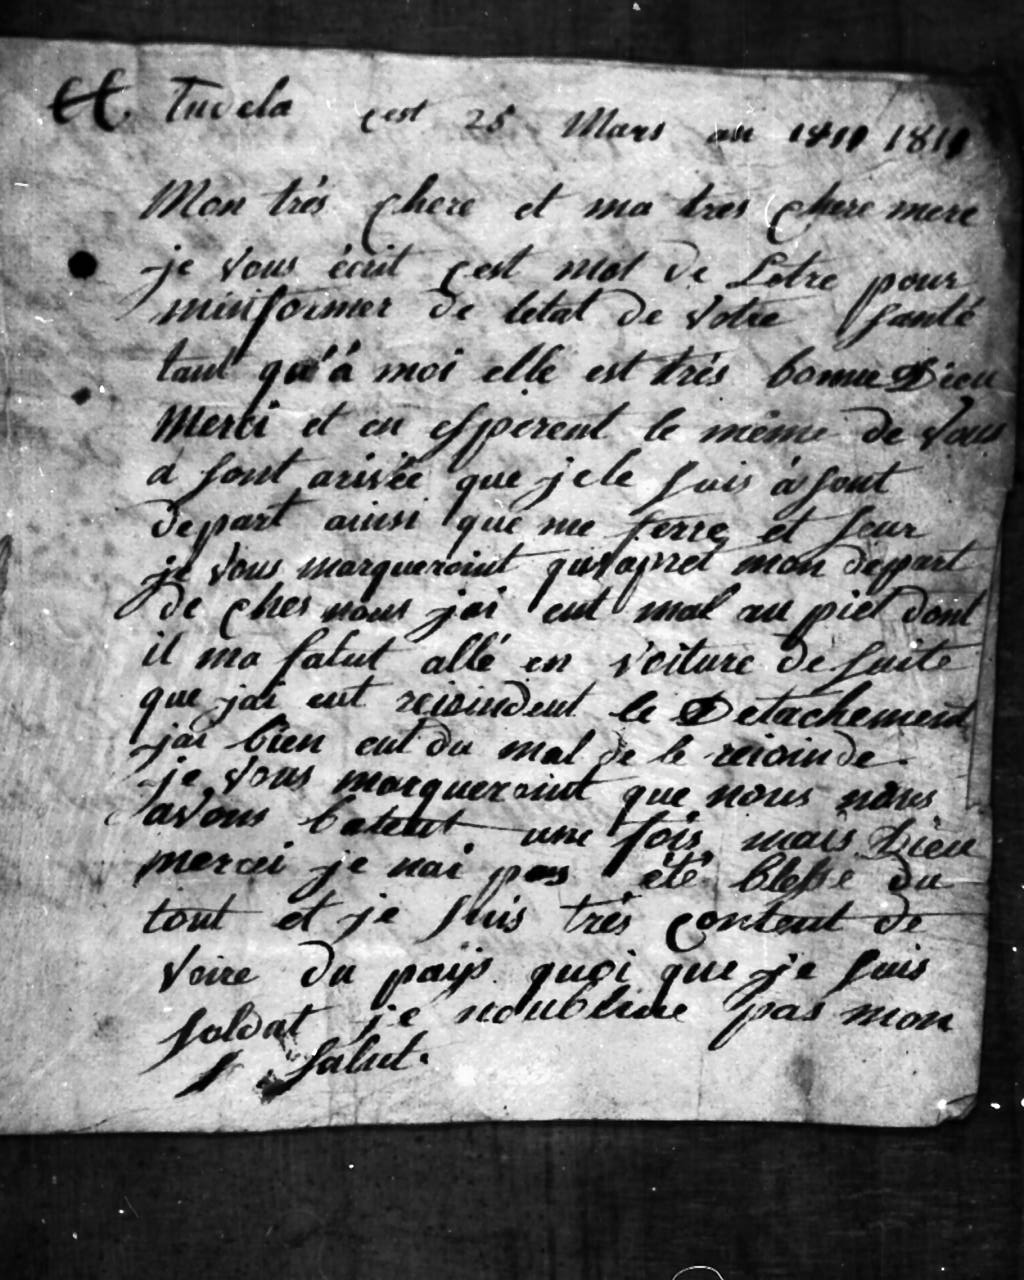 Tudela cest 25 Mars an 1811 1811
Mon trés chere et ma tres chere mere
je vous écrit cest mot de Lotre pour
minformer de letat de votre santé
tant qu'á moi elle est trés bonne Dieu
Merci et en esperent le même de vous
a sont arivée que je le suis á sont
depart ainsi que me ferre et seur
je vous marqueroint qu'apret mon depart
de ches nous jai eut mal au piet dont
il ma falut allé en voiture de suite
que jai eut rejoindeut le Detachement
jai bien eut du mal de le rejoinde.
je vous marqueroint que nous nous
avons bateut une fois mais Dieu
mercei je nai pas été blessé du
tout et je suis trés content de
voire du païs quoi que je suis
soldat je noublirue pas mon
salut.